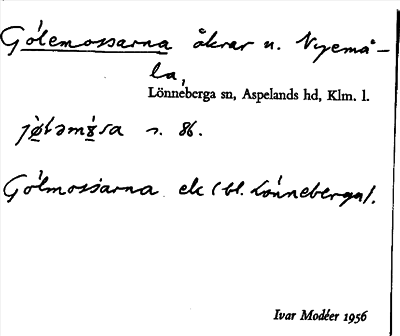 Gölemossarna åkrar u. Nyemå-
la,
Lönneberga sn, Aspelands hd, Klm. l.
s. 86.
Gölmossarna ek (bl. Lönneberga).
Ivar Modéer 1956